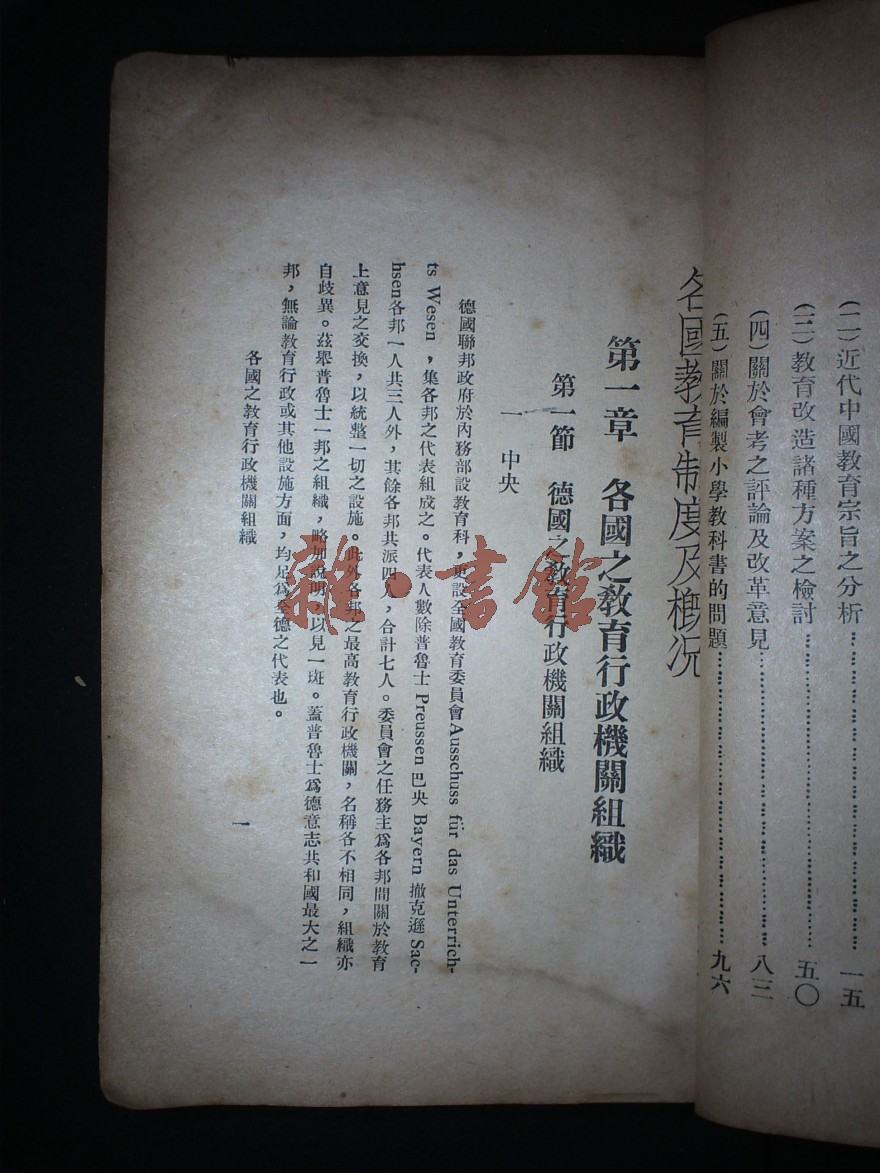 (二)近代中國教育宗旨之分析……………………一五
(三)教育改造諸種方案之檢討……………………五〇
(四)關於會考之評論及改革意見……………………八三
(五)關於編製小學教科書的問題……………………九六
各國教育制度及概況
第一章 各國之教育行政機關組織
第一節 德國之教育行政機關組織
一 中央
德國聯邦政府於內務部設教育科,更設全國教育委員會Ausschuss für das Unterrich-
ts Wesen,集各邦之代表組成之。代表人數除普魯士 Preussen 巴央 Bayern 撤克遜 Sac-
hsen各邦一人共三人外,其餘各邦共派四人,合計七人。委員會之任務主爲各邦間關於教育
上意見之交換,以統整一切之設施。此外各邦之最高教育行政機關,名稱各不相同,組織亦
自歧異。茲舉普魯士一邦之組織,略加說明,以見一斑。蓋普魯士爲德意志共和國最大之一
邦,無論教育行政或其他設施方面,均足爲全德之代表也。
各國之教育行政機關組織
一
雜·書館